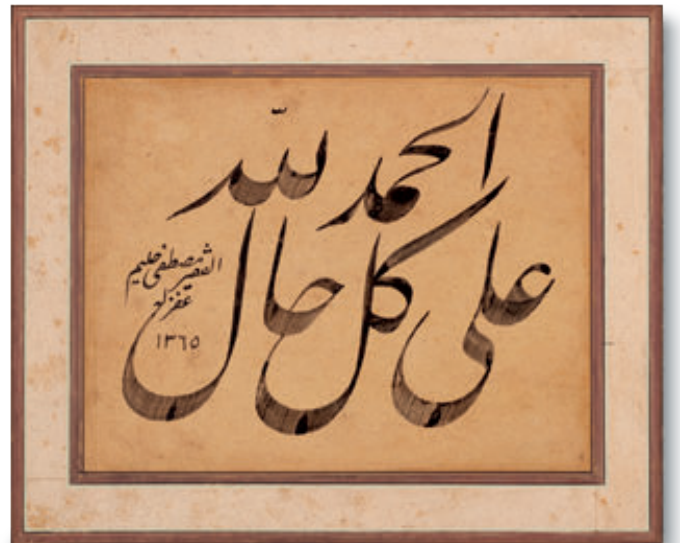 الحمد لله
على كل حال
الفقير مصطفى حليم
غفر له
١٣٦٥